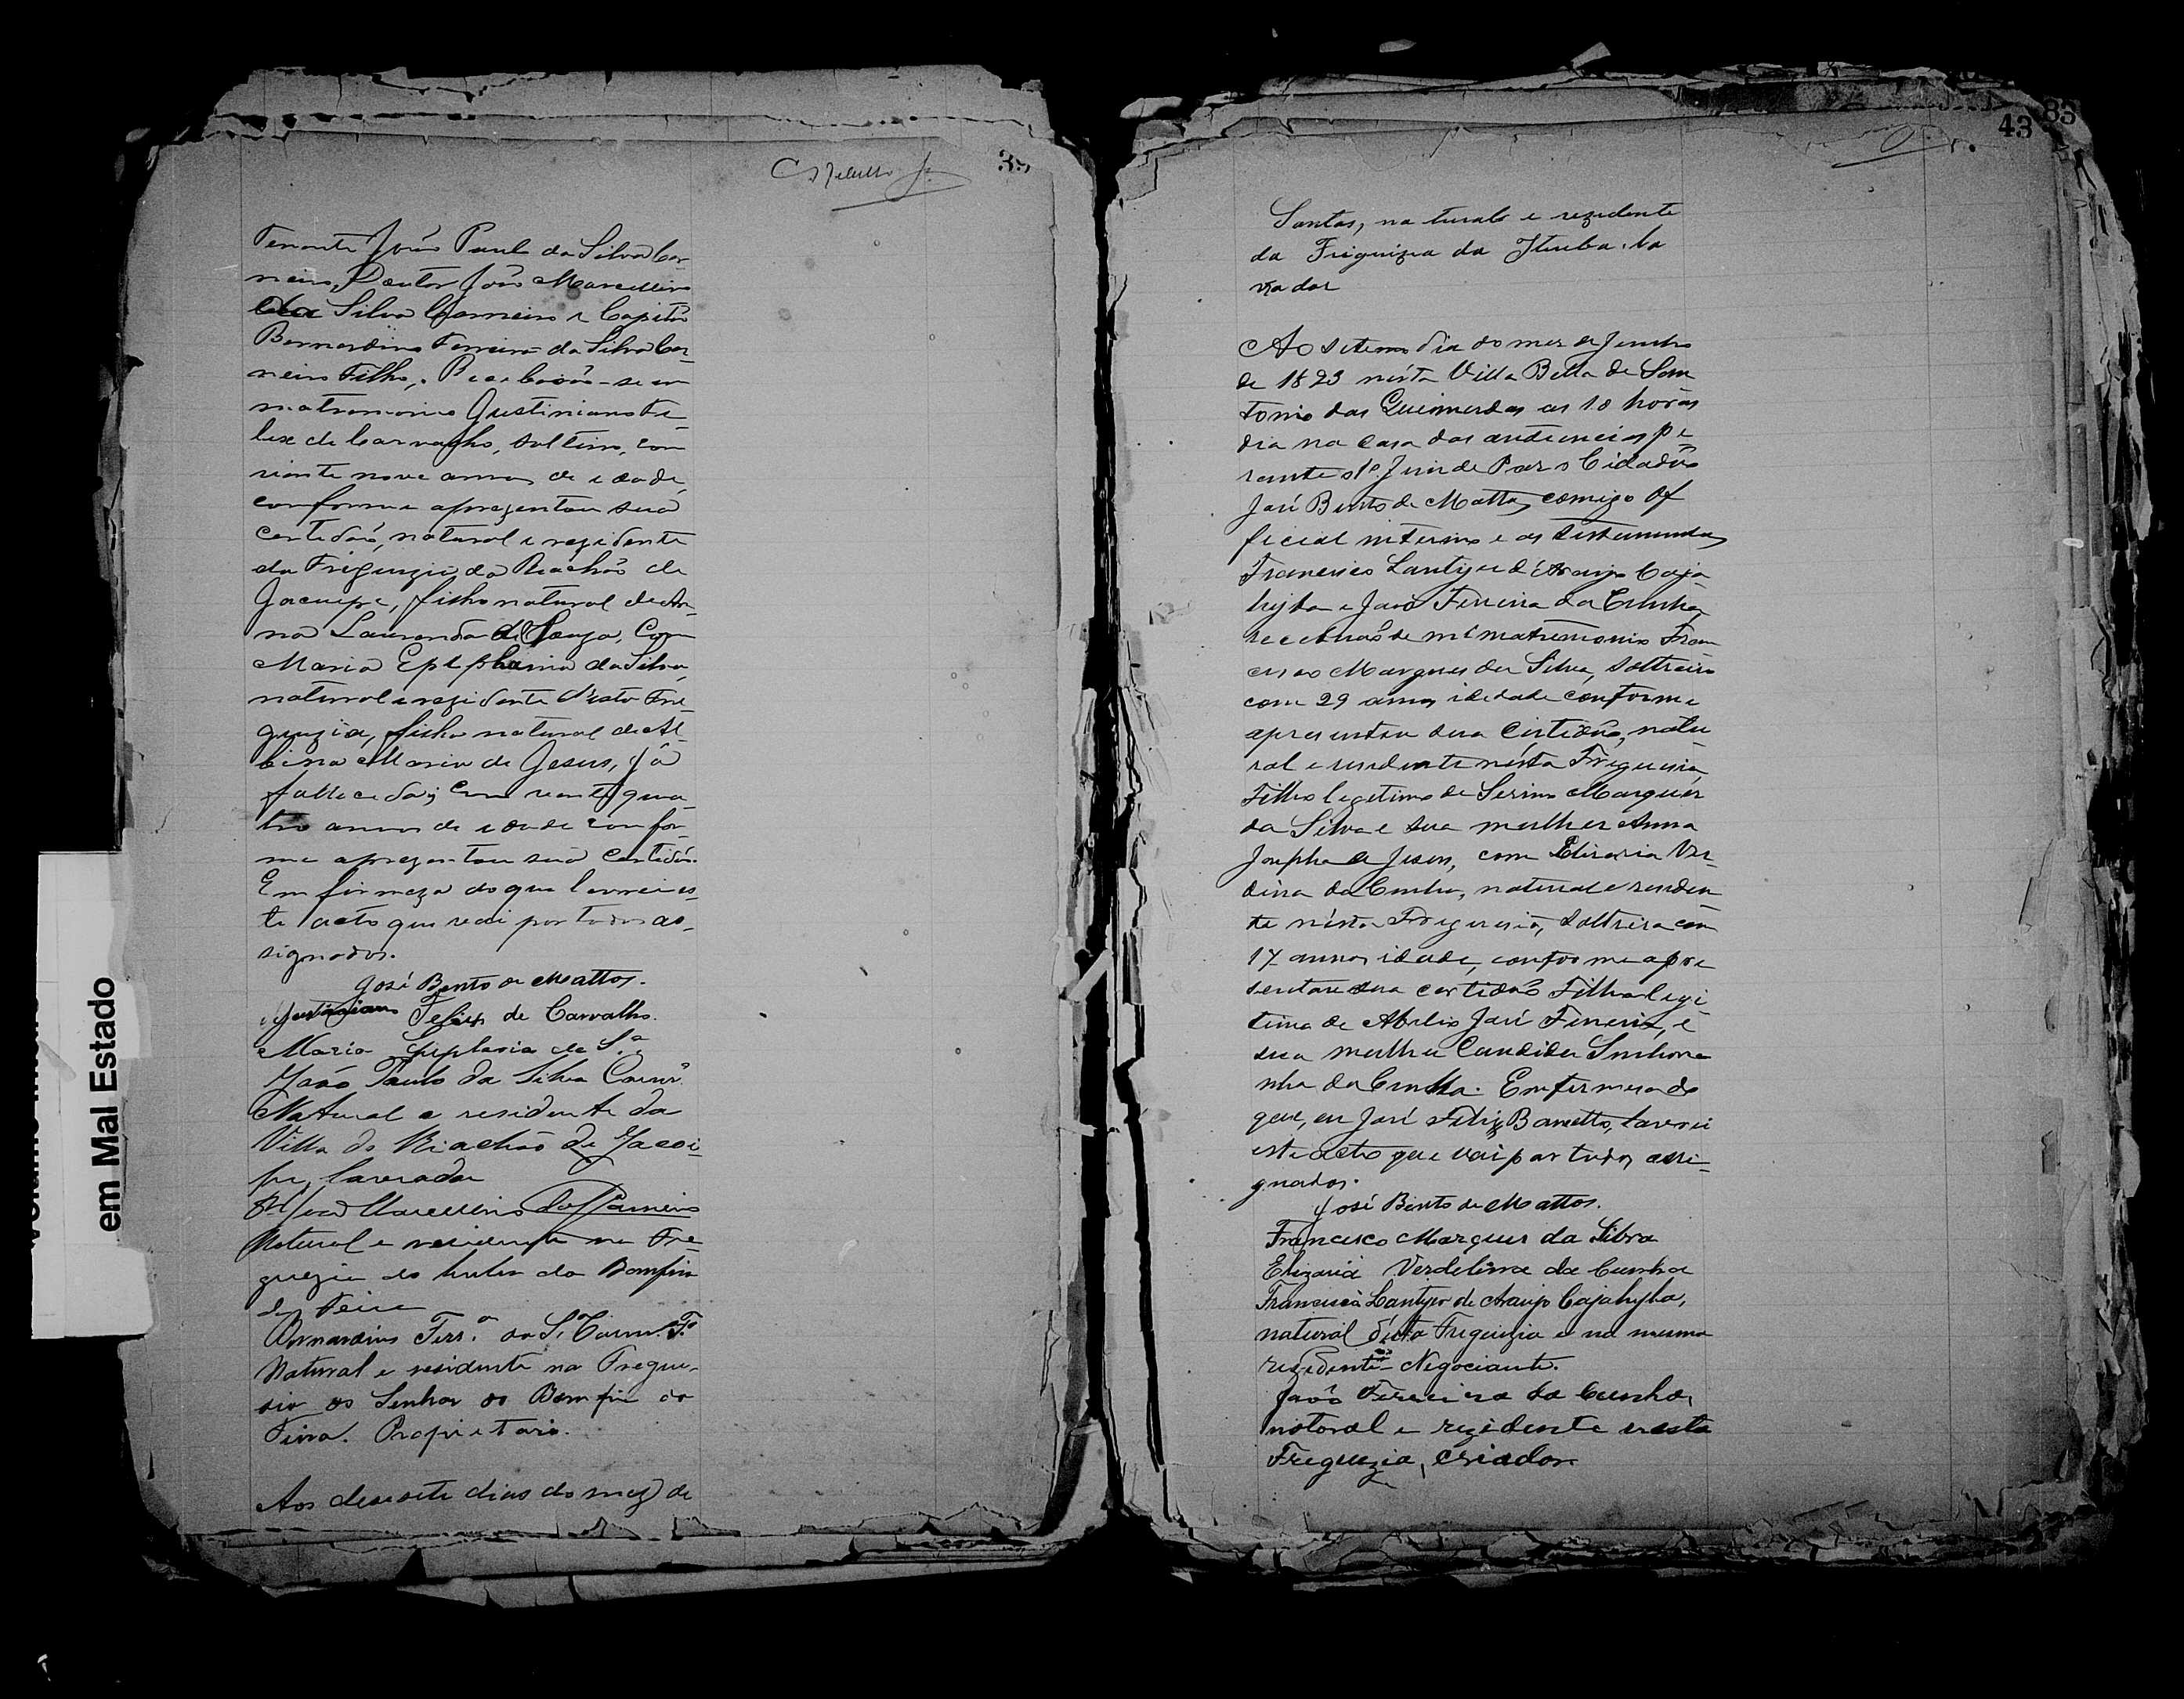 39
Tenente João Paulo da Silva Car-
neiro, Doutor João Marcellino
da Silva Carneiro e Capitão
Bernardino Ferreira da Silva Car-
neiro Filho, Receberão-se em
matromonio Justiniano Fe-
lix de Carvalho, solteiro, com
vinte nove annos de idade,
conforme aprezentou sua
certidão, natural e rezidente
da Freguezia do Riachão de
Jacuipe, filho natural de An-
na Laurinda de Souza, Com
Maria Epiphania da Silva,
natural e rezidente desta Fre-
guezia, filha natural de Al-
bina Maria de Jesus, já
fallecida; com vente qua-
tro annos de idade confor-
me aprezentou sua certidão.
Em firmeza do que lavrei es-
te acto que vai por todos as-
signados.
José Bento de Mattos.
Justiniano Felix de Carvalho.
Maria Epiphania da S.ª
João Paulo da Silva Carnr.º
Natural e residente da
Villa do Riachão de Jacoi-
pe, lavrador
João Marcellino da S Carneiro
Natural e residente na Fre-
guezia do Senhor do Bomfim
da Feira
Bernardino Ferr.ª da S.ª Carnr.º F.º
Natural e residente na Fregue-
sia do Senhor do Bomfim da
Feira. Proprietario.
Aos desesete dias do mez de
83
43
Santos, natural e rezidente
da Freguizia da Itiuba, la
vrador
Ao setemo dia do mes de Junho
de 1893 nésta Villa Bella de San
tonio das Queimadas as 10 horas
dia na casa das audiencias pe
rante o 1º Juiz de Paz o Cidadão
José Bento de Mattos comigo Of
ficial interino e as testemunhas
Francisco Lantyer d'Araujo Caja
hyba e João Ferreira da Cunha,
receberão se em matremonio Fran
cisco Marques da Silva, solteiro
com 29 annos idedade conforme
apresentou sua Certidão, natu
ral e residente nésta Freguesia,
Filho legetimo de Serino Marques
da Silva e sua mulher Anna
Josepha de Jesus, com Elizaria Ver-
dina da Cunha, natural e residen
te nésta Freguesia, solteira com
17 annos idade, conforme apre
sentou sua certidão Filha legi
tima de Abilio José Ferreira, e
sua mulher Candida Senhori
nha da Cunha. Em firmesa do
que, eu José Felix Barretto, lavrei
este acto que vai por todos assi-
gnados.
José Bento de Mattos.
Francisco Marques da Silva
Elizaria Verdelina da Cunha
Francisco Lantyer de Araujo Cajahyba,
natural désta Freguezia e na mesma
residente - Negociante.
João Ferreira da Cunha,
natoral e rezidente nesta
Freguezia, criador.
em Mal Estado